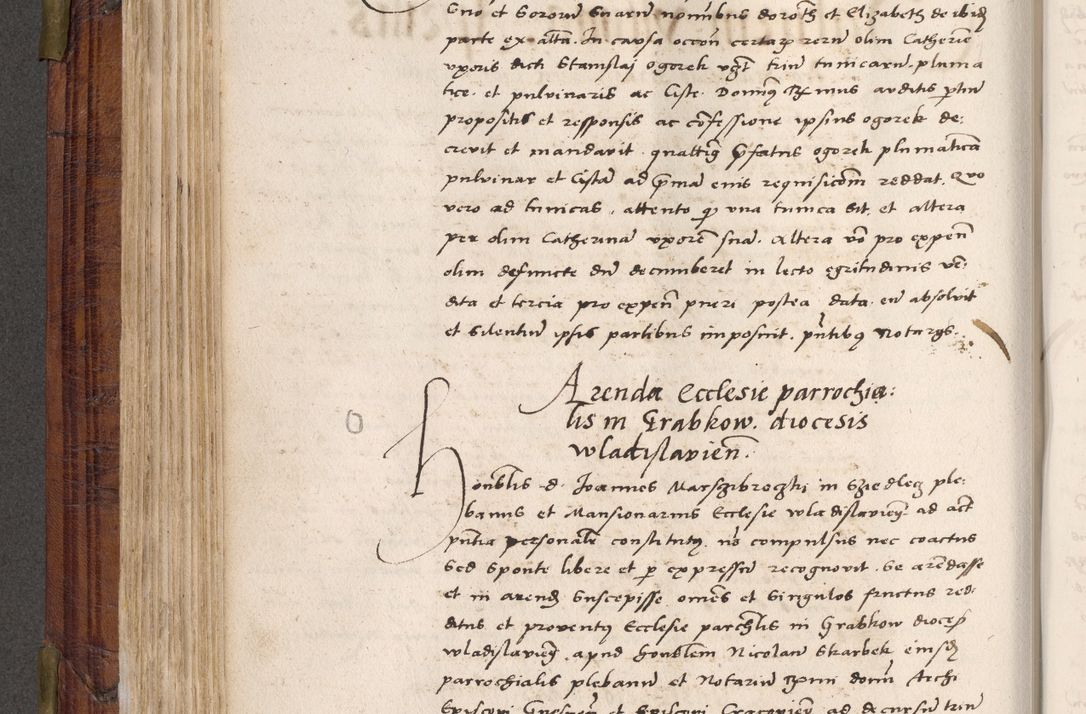 Suo et sororu suaru nominibus doroth et Elizabeth de ibid
parte ex alta. In causa occon certar reru olim Catherine
uxoris dicti Stanislaj ogorek vzt triu tunicaru. pluma
tice. et pulvinaris ac Ciste. Dominus Rmus auditis ptiu
propositis et responsis ac confessione ipsius ogorek de:
crevit et mandavit. quattinus pfatus ogorek plumatica
pulvinar et Cista ad pma eius requisicom reddat. Quo
vero ad tunicas. attento q una tunica sit. et altera
per olim Catherina uxore sua. Altera vo pro expen
olim defuncte du decumberet in lecto egritudinis ve:
dita et tercia pro expen pueri postea data. eu absolvit
et silentiu ipsis partibus imposuit. pntibus Notargs.
Arenda Ecclesie parrochia:
lis in Grabkow. diocesis
wladislavien.
O
honblis d. Joannes Marszibroczki in Sziedlecz ple:
banus et Mansionarius Ecclesie wladislavien ad act
pntia personalr constitutus. no compulsus nec coactus
sed sponte libere et p expressu recognovit. Se arendasse
et in arend suscepisse omes et singulos fructus red:
ditus et proventus Ecclesie parchlis in Grabkow dioces
wladislavien. apud honblem Nicolau Skarbek eiusd
parrochialis plebanu et Notariu Rmi domi Archi
Episcopi Gnesnen et Episcopi Cracovien ad decursu triu